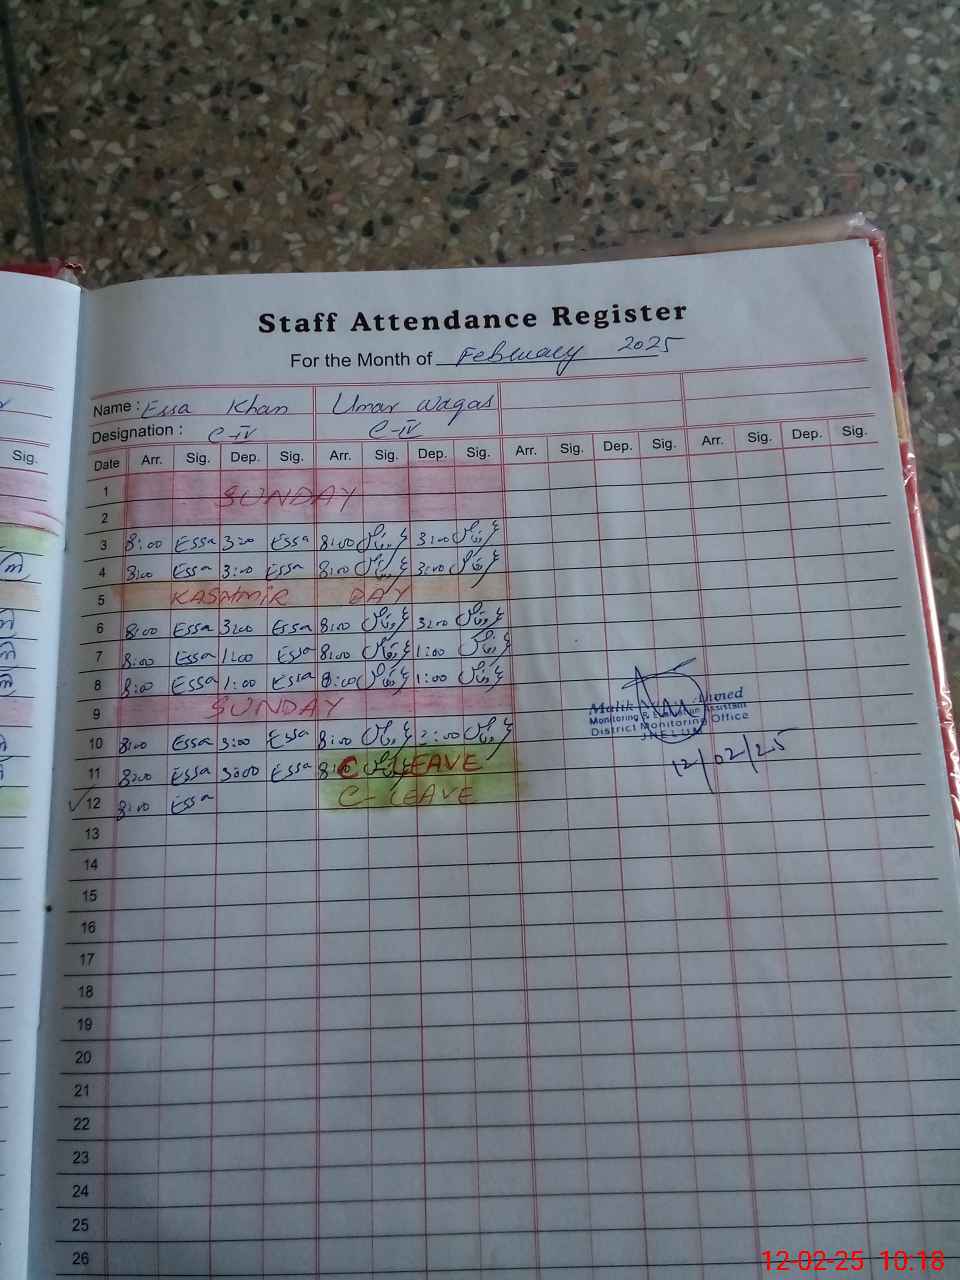 Staff Attendance Register
For the Month of February 2025
Name : Essa Khan Umar Waqas
Designation : C-IV C-IV
Sig. Date Arr. Sig. Dep. Sig. Arr. Sig. Dep. Sig. Arr. Sig. Dep. Sig. Arr. Sig. Dep. Sig.
1
SUNDAY
2
3 8:00 Essa 3:00 Essa 8:00 3:00
4 8:00 Essa 3:00 Essa 8:00 3:00
5 KASHMIR DAY
6 8:00 Essa 3:00 Essa 8:00 3:00
7 8:00 Essa 1:00 Essa 8:00 1:00
8 8:00 Essa 1:00 Essa 8:00 1:00
9 SUNDAY
Malik Ahmed
Monitoring & Evaluation Assistant
District Monitoring Office
JHELUM
12/02/25
10 8:00 Essa 3:00 Essa 8:00
11 8:00 Essa 3:00 Essa C-LEAVE
12 8:00 Essa C-LEAVE
13
14
15
16
17
18
19
20
21
22
23
24
25
26
12-02-25 10:18